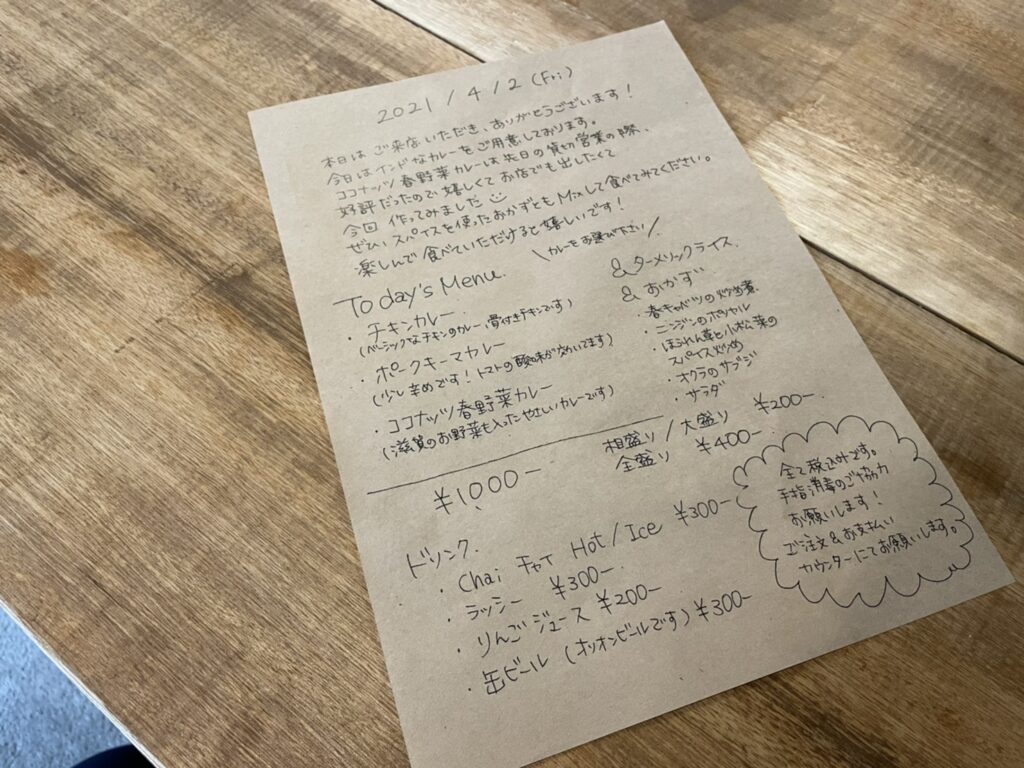 2021/4/2(Fri)
本日はご来店いただき、ありがとうございます!
今日はインドなカレーをご用意しております。
ココナッツ春野菜カレーは先日の貸切営業の際、
好評だったので嬉しくてお店でも出したくて
今回 作ってみました
ぜひ、スパイスを使ったおかずともMixして食べてみてください。
楽しんで食べていただけると嬉しいです!
Today's Menu.
\カレーをお選び下さい/
・チキンカレー
(ベーシックなチキンのカレー、骨付きチキンです)
・ポークキーマカレー
(少し辛めです!トマトの酸味が効いてます)
・ココナッツ春野菜カレー
(滋賀のお野菜も入ったやさしいカレーです)
& ターメリックライス
& おかず
・春キャベツの炒め煮
・ニンジンのポリヤル
・ほうれん草と小松菜の
スパイス炒め
・オクラのサブジ
・サラダ
¥1,000-
相盛り/大盛り ¥200-
全盛り ¥400-
ドリンク.
・Chai チャイ Hot/Ice ¥300-
・ラッシー ¥300-
・りんごジュース ¥200-
・缶ビール (オリオンビールです) ¥300-
全て税込です。
手指消毒のご協力
お願いします!
ご注文&お支払い
カウンターにてお願いします。